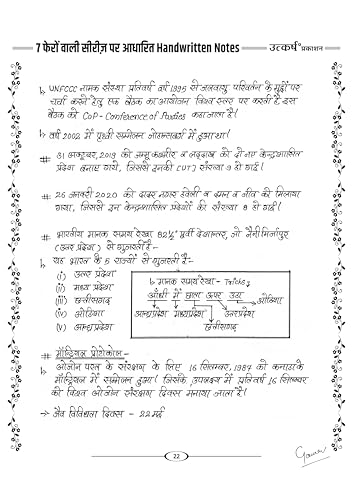 7 फेरों वाली सीरीज़ पर आधारित Handwritten Notes
उत्कर्ष प्रकाशन
↳ UNFCCC नामक संस्था प्रतिवर्ष वर्ष 1995 से जलवायु परिवर्तन के मुद्दों पर
चर्चा करने हेतु एक बैठक का आयोजन विश्व स्तर पर करती है इस
बैठक को CoP - Conference of Parties कहा जाता है।
↳ वर्ष 2002 में पृथ्वी सम्मेलन जोहान्सबर्ग में हुआ था।
# 31 अक्टूबर, 2019 को जम्मू कश्मीर व लद्दाख को दो नए केन्द्रशासित
प्रदेश बनाए गये, जिससे इनकी (UT) संख्या 9 हो गई।
# 26 जनवरी 2020 को दादर नगर हवेली व दमन व दीव को मिलाया
गया, जिससे इन केन्द्रशासित प्रदेशों की संख्या 8 हो गई।
# भारतीय मानक समय रेखा 82½° पूर्वी देशान्तर, जो नैनी मिर्जापुर
(उत्तर प्रदेश) से गुजरती है -
↳ यह भारत के 5 राज्यों से गुजरती है -
(i) उत्तर प्रदेश
(ii) मध्य प्रदेश
(iii) छत्तीसगढ़
(iv) ओडिशा
(v) आन्ध्र प्रदेश
↳ मानक समय रेखा - Tricks
आँधी में छाता ऊपर उड़ा
ओडिशा
आन्ध्रप्रदेश मध्यप्रदेश उत्तरप्रदेश
छत्तीसगढ़
# मॉन्ट्रियल प्रोटोकोल -
↳ ओजोन परत के संरक्षण के लिए 16 सितम्बर, 1987 को कनाडा के
मॉन्ट्रियल में सम्मेलन हुआ। जिसके उपलक्ष्य में प्रतिवर्ष 16 सितम्बर
को विश्व ओजोन संरक्षण दिवस मनाया जाता है।
→ जैव विविधता दिवस - 22 मई
22